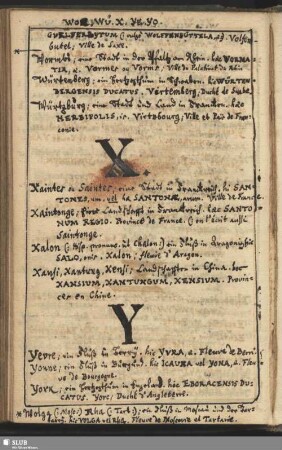 WOR. WÜ. X. YE. YO.
GUELFERBYTUM ( vulgò WOLFFENBÜTTEL
butel; Ville de Saxe.
Wormbs; eine Stadt in der Pfaltz am Rhein. hæc VORMA-
TIA, æ. Vormes ou Vorms;
Würtenberg; ein Hertzogthum in Schwaben. WÜRTEN-
BERGENSIS DUCATUS. Vertemberg; Duché de Suabe.
Würtzburg; eine Stadt und Land in Francken. hæc
HERBIPOLIS, is. Virtsbourg; Ville et Païs de Fran-
conie.
X.
Xaintes ou Saintes; eine Stadt in Franckreich. hi SAN-
TONES, um. vel hæ SANTONÆ, arum. Ville de France.
Xaintonge; eine Landschafft in Franckreich. hæc SANTO-
NUM REGIO. Province de France. ( on l'écrit aussi
Saintonge.
Xalon ( : Hisp. pronunc. ut Chalon :) ein Fluß in Aragonien. his
SALO, onis. Xalon; Fleuve d'Aragon.
Xansi, Xantung, Xensi; Landschafften in China. hoc
XANSIUM, XANTUNGUM, XENSIUM. Provin-
ces en Chine.
Y
Yevre; ein Fluß in Berry. hic YVRA, æ. Fleuve de Berri.
Yonne; ein Fluß in Burgund. hic ICAUNA vel YONA, æ. Fleu-
ve de Bourgogne.
York; ein Hertzogthum in Engeland. hic EBORACENSIS DU-
CATUS. Yorc; Duché d'Angleterre.
Wolga (: Mosc:) Rha (: Tart:); ein Fluß in Moscau und der Tar-
tarey. hic VOLGA vel RHA. Fleuve de Moscovie et Tartarie.
SLUB